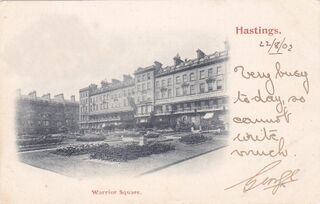 Hastings.
22/8/02
Very busy
to-day, so
cannot
write
much.
George
Warrior Square.